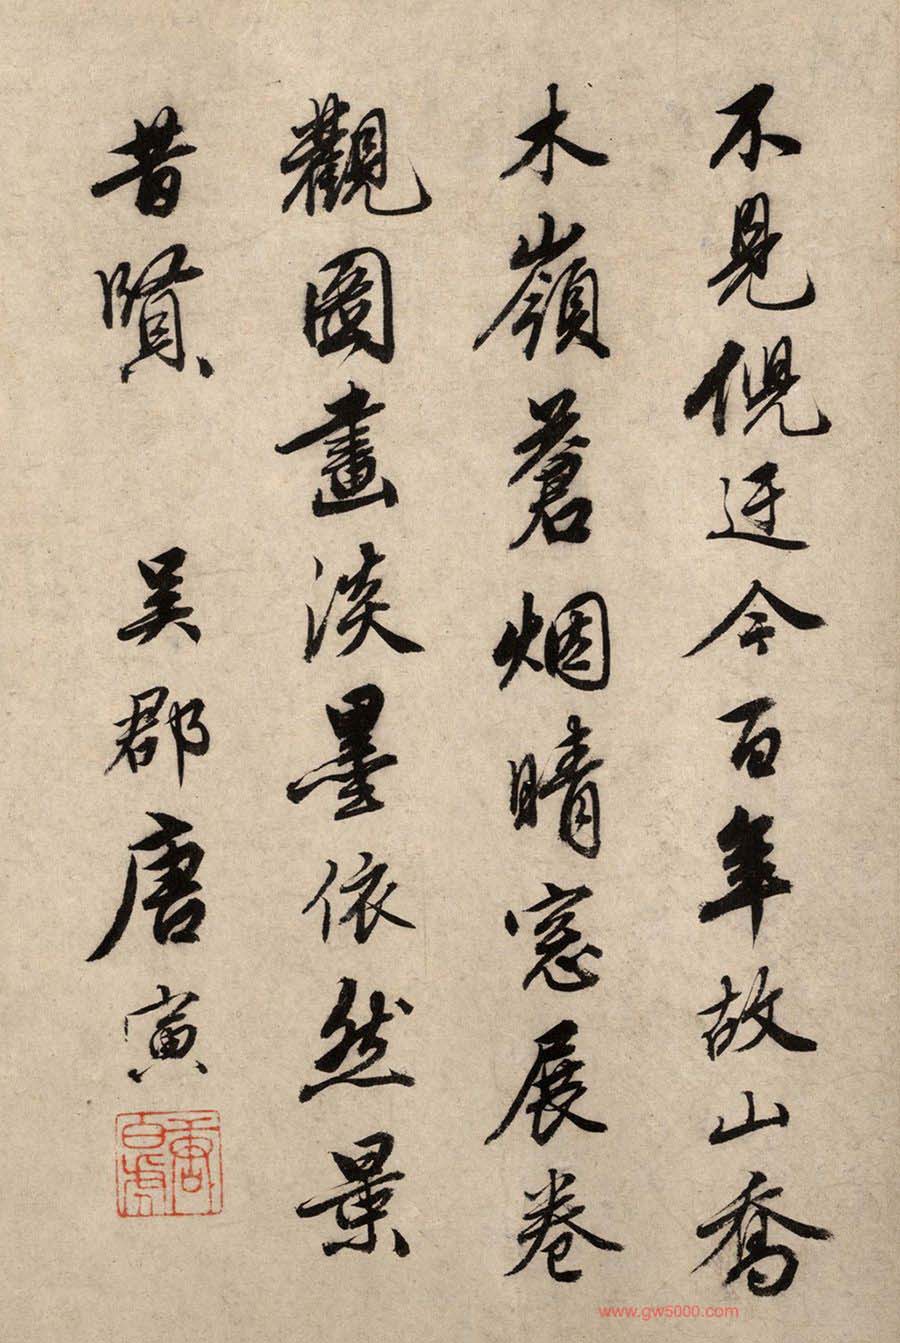 不見倪迂今百年故山喬
木嶺蒼烟晴窓展卷
觀圖畫淡墨依然景
昔賢 吴郡唐寅
唐白虎
www.gw5000.com